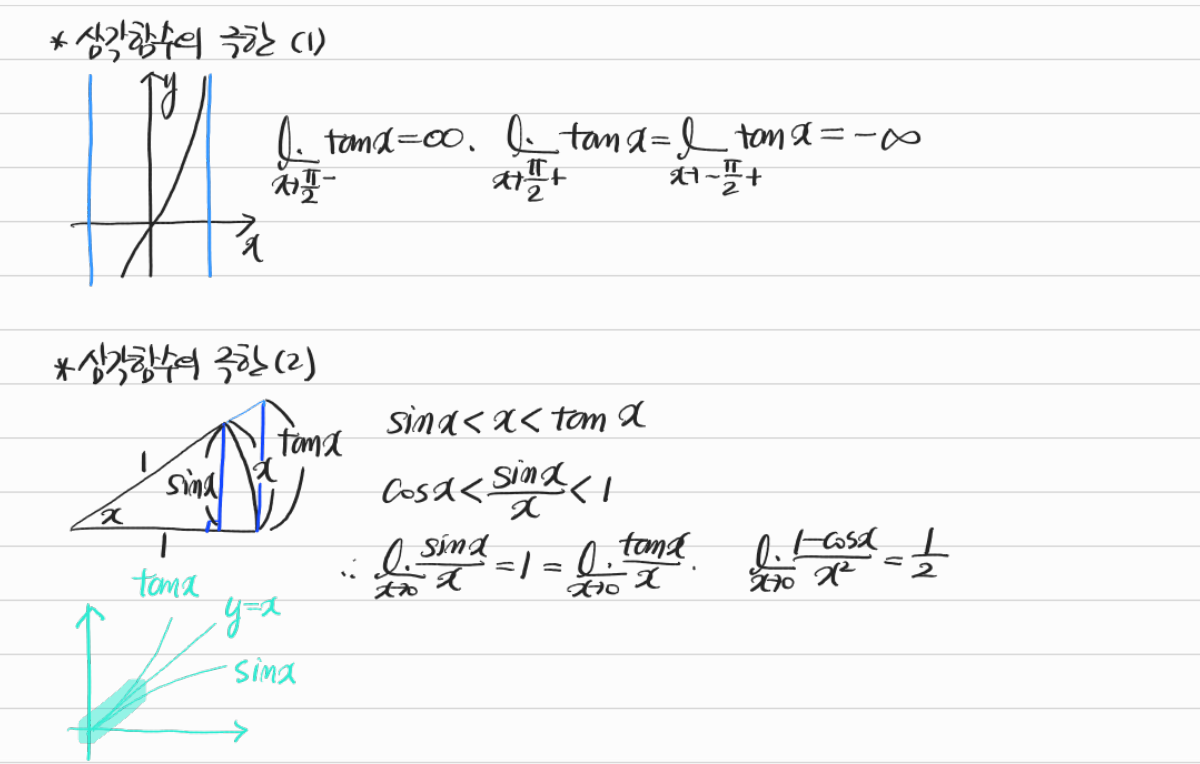 * 삼각함수의 극한 (1)
y
lim_{x→π/2-} tanx = ∞. lim_{x→π/2+} tanx = lim_{x→-π/2+} tanx = -∞
x
* 삼각함수의 극한 (2)
sinx < x < tanx
1 sinx x tanx
x
1
cosx < sinx/x < 1
∴ lim_{x→0} sinx/x = 1 = lim_{x→0} tanx/x. lim_{x→0} (1-cosx)/x² = 1/2
tanx
y=x
sinx